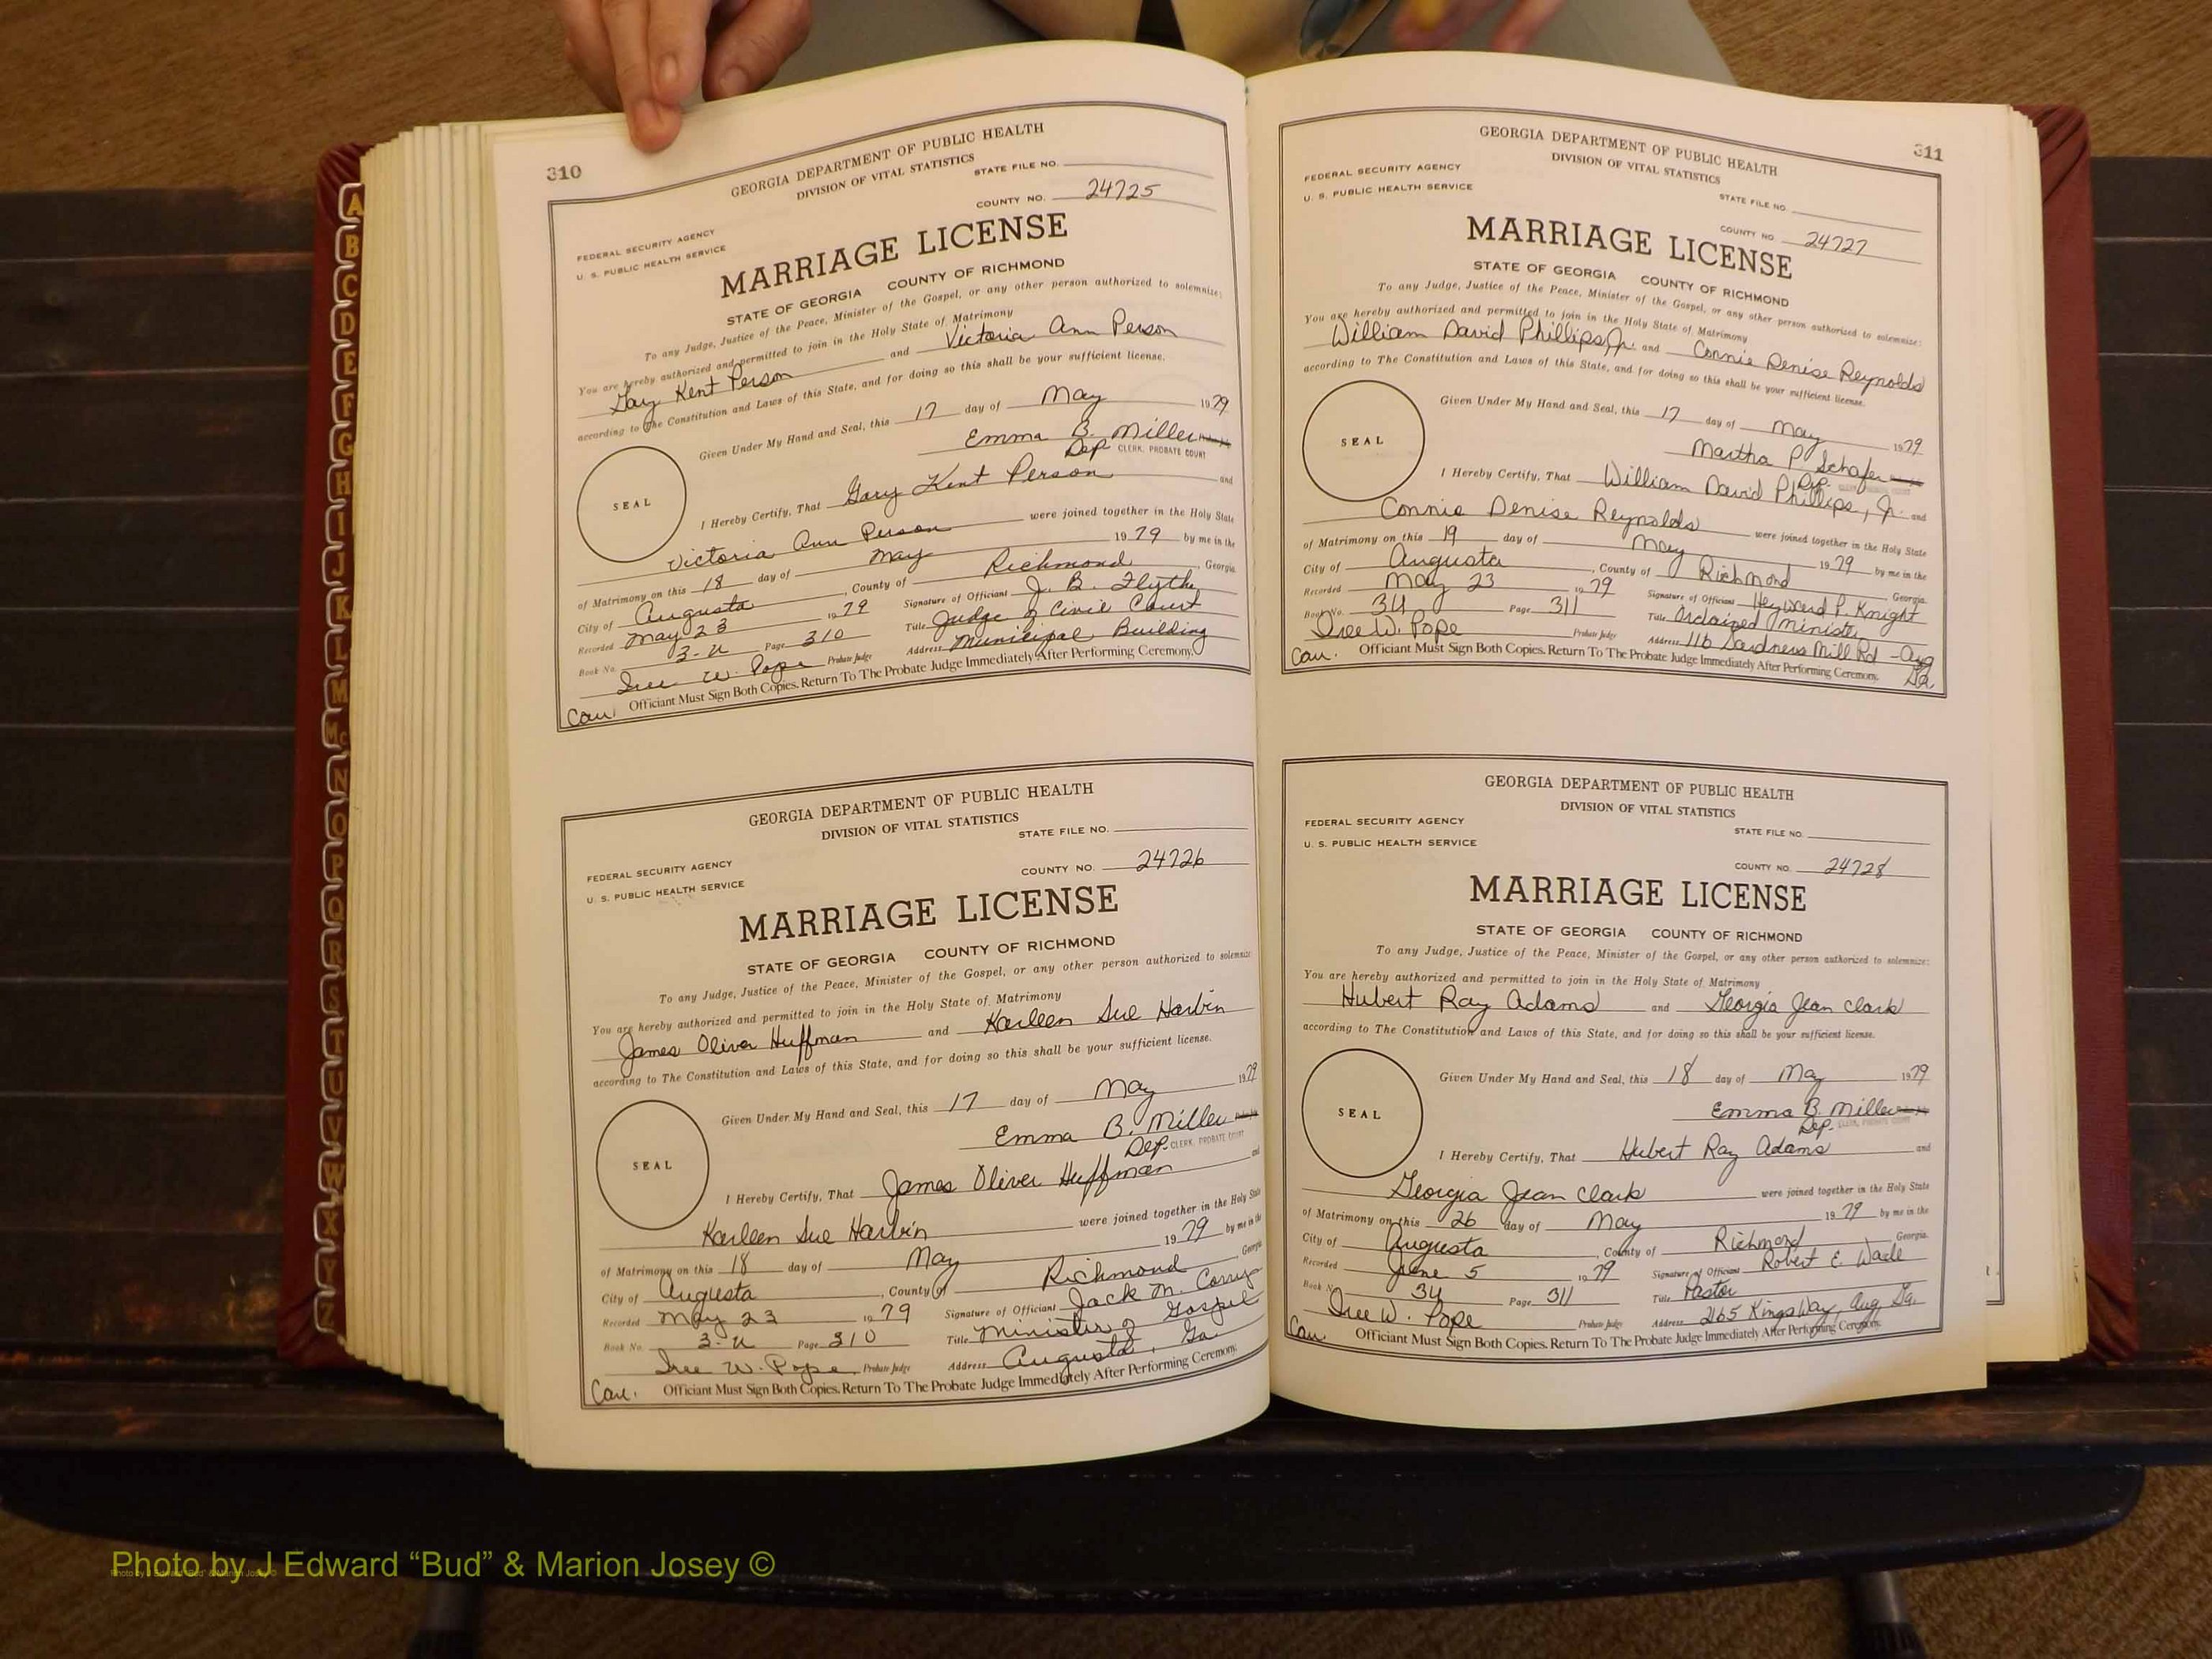 310
GEORGIA DEPARTMENT OF PUBLIC HEALTH
DIVISION OF VITAL STATISTICS
STATE FILE NO.
COUNTY NO. 24725
FEDERAL SECURITY AGENCY
U. S. PUBLIC HEALTH SERVICE
MARRIAGE LICENSE
STATE OF GEORGIA COUNTY OF RICHMOND
To any Judge, Justice of the Peace, Minister of the Gospel, or any other person authorized to solemnize:
You are hereby authorized and permitted to join in the Holy State of Matrimony
Gary Kent Person and Victoria Ann Person
according to The Constitution and Laws of this State, and for doing so this shall be your sufficient license.
Given Under My Hand and Seal, this 17 day of May 1979
Emma B. Miller
Dep CLERK, PROBATE COURT
SEAL
I Hereby Certify, That Gary Kent Person and
Victoria Ann Person were joined together in the Holy State
of Matrimony on this 18 day of May 1979 by me in the
City of Augusta, County of Richmond, Georgia.
Recorded May 23 1979 Signature of Officiant J. B. Flythe
Book No. 3-U Page 310 Title Judge of Civil Court
Iree W. Pope Probate Judge Address Municipal Building
Officiant Must Sign Both Copies. Return To The Probate Judge Immediately After Performing Ceremony.
Cau.
GEORGIA DEPARTMENT OF PUBLIC HEALTH
DIVISION OF VITAL STATISTICS
STATE FILE NO.
COUNTY NO. 24726
FEDERAL SECURITY AGENCY
U. S. PUBLIC HEALTH SERVICE
MARRIAGE LICENSE
STATE OF GEORGIA COUNTY OF RICHMOND
To any Judge, Justice of the Peace, Minister of the Gospel, or any other person authorized to solemnize
You are hereby authorized and permitted to join in the Holy State of Matrimony
James Oliver Huffman and Karleen Sue Harbin
according to The Constitution and Laws of this State, and for doing so this shall be your sufficient license.
Given Under My Hand and Seal, this 17 day of May 1979
Emma B. Miller
Dep. CLERK, PROBATE COURT
SEAL
I Hereby Certify, That James Oliver Huffman and
Karleen Sue Harbin were joined together in the Holy State
of Matrimony on this 18 day of May 1979 by me in the
City of Augusta, County of Richmond Georgia
Recorded May 23 1979 Signature of Officiant Jack M.
Book No. 3-U Page 310 Title Minister of Gospel
Iree W. Pope Probate Judge Address Augusta, Ga.
Cau. Officiant Must Sign Both Copies. Return To The Probate Judge Immediately After Performing Ceremony.
311
GEORGIA DEPARTMENT OF PUBLIC HEALTH
DIVISION OF VITAL STATISTICS
FEDERAL SECURITY AGENCY
U. S. PUBLIC HEALTH SERVICE
STATE FILE NO.
COUNTY NO. 24727
MARRIAGE LICENSE
STATE OF GEORGIA COUNTY OF RICHMOND
To any Judge, Justice of the Peace, Minister of the Gospel, or any other person authorized to solemnize:
You are hereby authorized and permitted to join in the Holy State of Matrimony
William David Phillips, Jr. and Connie Denise Reynolds
according to The Constitution and Laws of this State, and for doing so this shall be your sufficient license.
Given Under My Hand and Seal, this 17 day of May 1979
Martha P. Schafer
Dep. CLERK, PROBATE COURT
SEAL
I Hereby Certify, That William David Phillips, Jr. and
Connie Denise Reynolds were joined together in the Holy State
of Matrimony on this 19 day of May 1979 by me in the
City of Augusta, County of Richmond Georgia.
Recorded May 23 1979 Signature of Officiant Heyward P. Knight
Book No. 3U Page 311 Title Ordained Minister
Iree W. Pope Probate Judge Address 116 Mill Rd - Aug
Ga.
Cau. Officiant Must Sign Both Copies. Return To The Probate Judge Immediately After Performing Ceremony.
GEORGIA DEPARTMENT OF PUBLIC HEALTH
DIVISION OF VITAL STATISTICS
FEDERAL SECURITY AGENCY
U. S. PUBLIC HEALTH SERVICE
STATE FILE NO.
COUNTY NO. 24728
MARRIAGE LICENSE
STATE OF GEORGIA COUNTY OF RICHMOND
To any Judge, Justice of the Peace, Minister of the Gospel, or any other person authorized to solemnize:
You are hereby authorized and permitted to join in the Holy State of Matrimony
Hubert Ray Adams and Georgia Jean Clark
according to The Constitution and Laws of this State, and for doing so this shall be your sufficient license.
Given Under My Hand and Seal, this 18 day of May 1979
Emma B. Miller
Dep. CLERK, PROBATE COURT
SEAL
I Hereby Certify, That Hubert Ray Adams and
Georgia Jean Clark were joined together in the Holy State
of Matrimony on this 26 day of May 1979 by me in the
City of Augusta, County of Richmond Georgia.
Recorded June 5 1979 Signature of Officiant Robert E. Wade
Book No. 3U Page 311 Title Pastor
Iree W. Pope Probate Judge Address 2165 Kings Way, Aug Ga.
Cau. Officiant Must Sign Both Copies. Return To The Probate Judge Immediately After Performing Ceremony.
A
B
C
D
E
F
G
H
I
J
K
L
M
Mc
N
O
P
Q
R
S
T
U
V
W
X
Y
Z
Photo by J Edward “Bud” & Marion Josey ©
Photo by J Edward “Bud” & Marion Josey ©